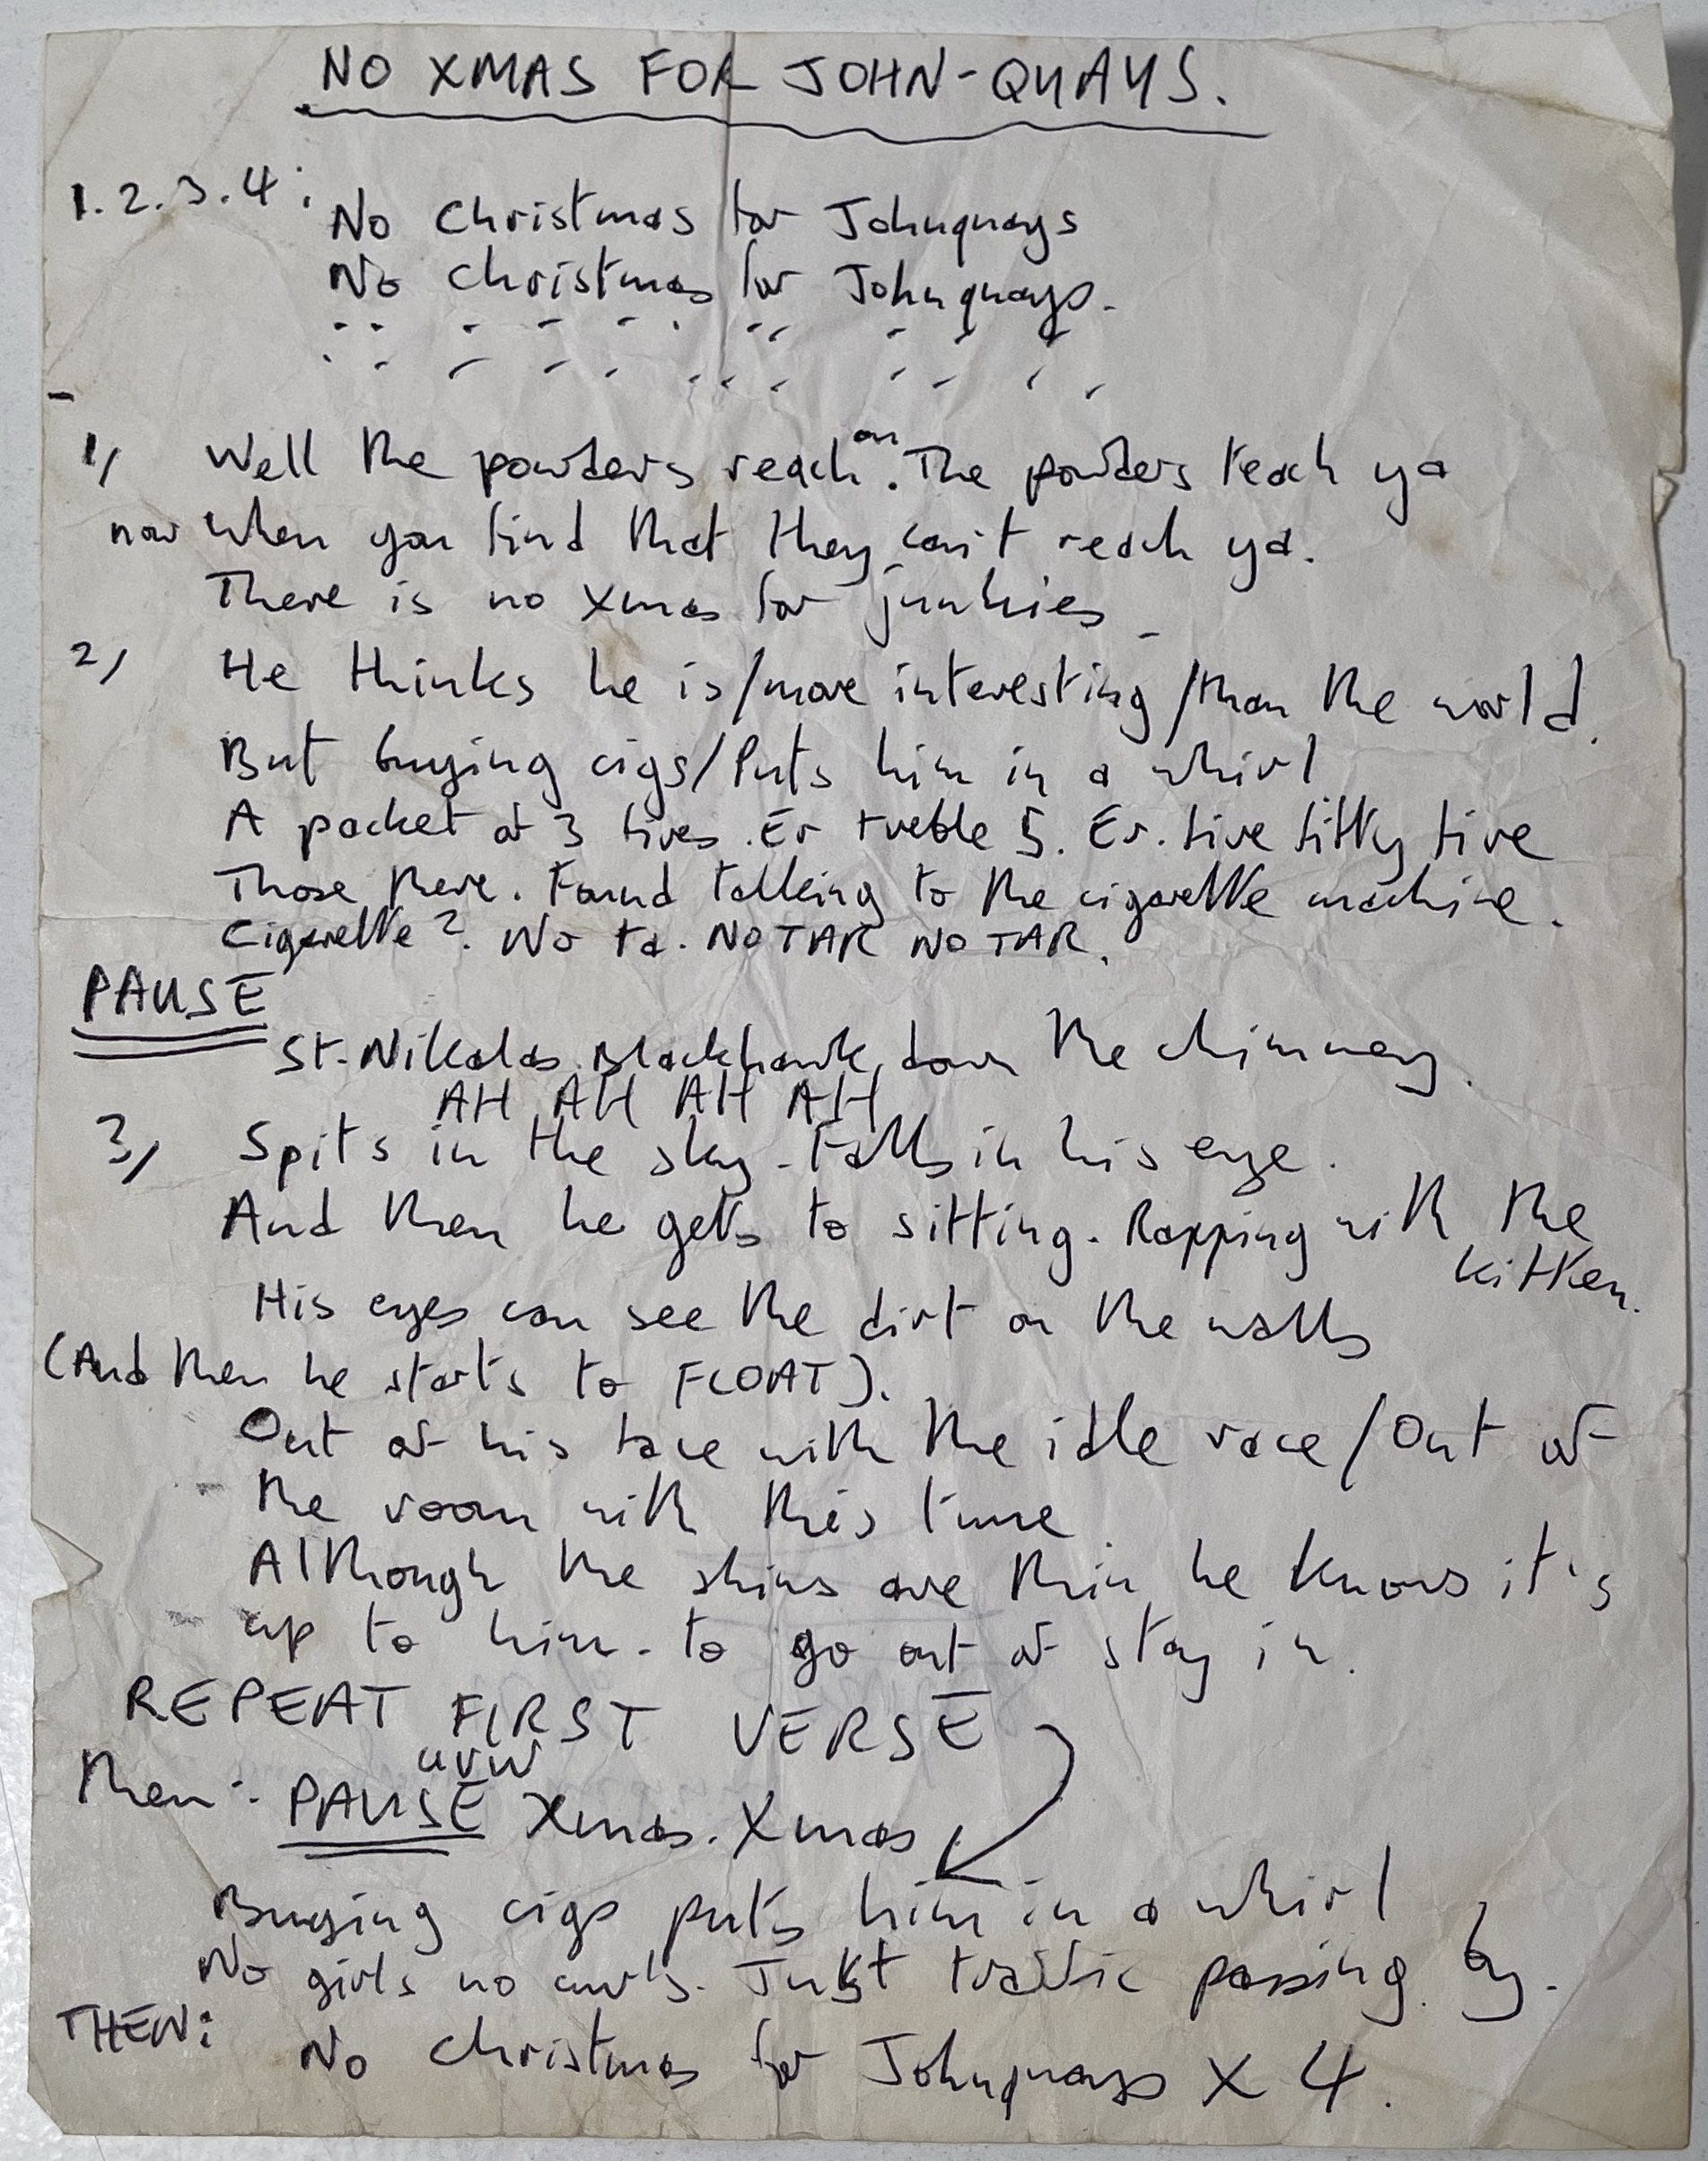 NO XMAS FOR JOHN-QUAYS.
1.2.3.4: No Christmas for Johnquays
No Christmas for Johnquays.
1) Well the powders reach on. The powders teach ya
now when you find that they can't reach ya.
There is no Xmas for junkies
2) He thinks he is/more interesting/than the world.
But buying cigs/Puts him in a whirl
A packet of 3 fives. Er treble 5. Er. five fifty five
Those there. Found talking to the cigarette machine.
Cigarette?. No ta. NO TAR NO TAR.
PAUSE
St. Nikolas Blackhawk down the chimney.
AH AH AH AH
3) Spits in the sky - Falls in his eye.
And then he gets to sitting. Rapping with the
kitten.
His eyes can see the dirt on the walls
(And then he starts to FLOAT).
Out of his face with the idle race/Out of
the room with this tune
Although the skins are thin he knows it's
up to him - to go out of stay in.
REPEAT FIRST VERSE
Then: PAUSE Xmas. Xmas
Buying cigs puts him in a whirl
No girls no curls. Just traffic passing by.
THEN: No Christmas for Johnquays X 4.